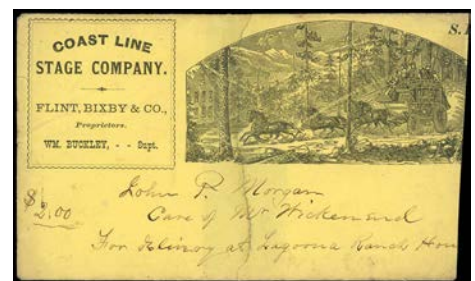 COAST LINE
STAGE COMPANY.
FLINT, BIXBY & CO.,
Proprietors.
WM. BUCKLEY, - - Supt.
S.
$2.00
John P. Morgan
Care of Mr Wickenend
For Delivery at Lagoona Ranch Hou